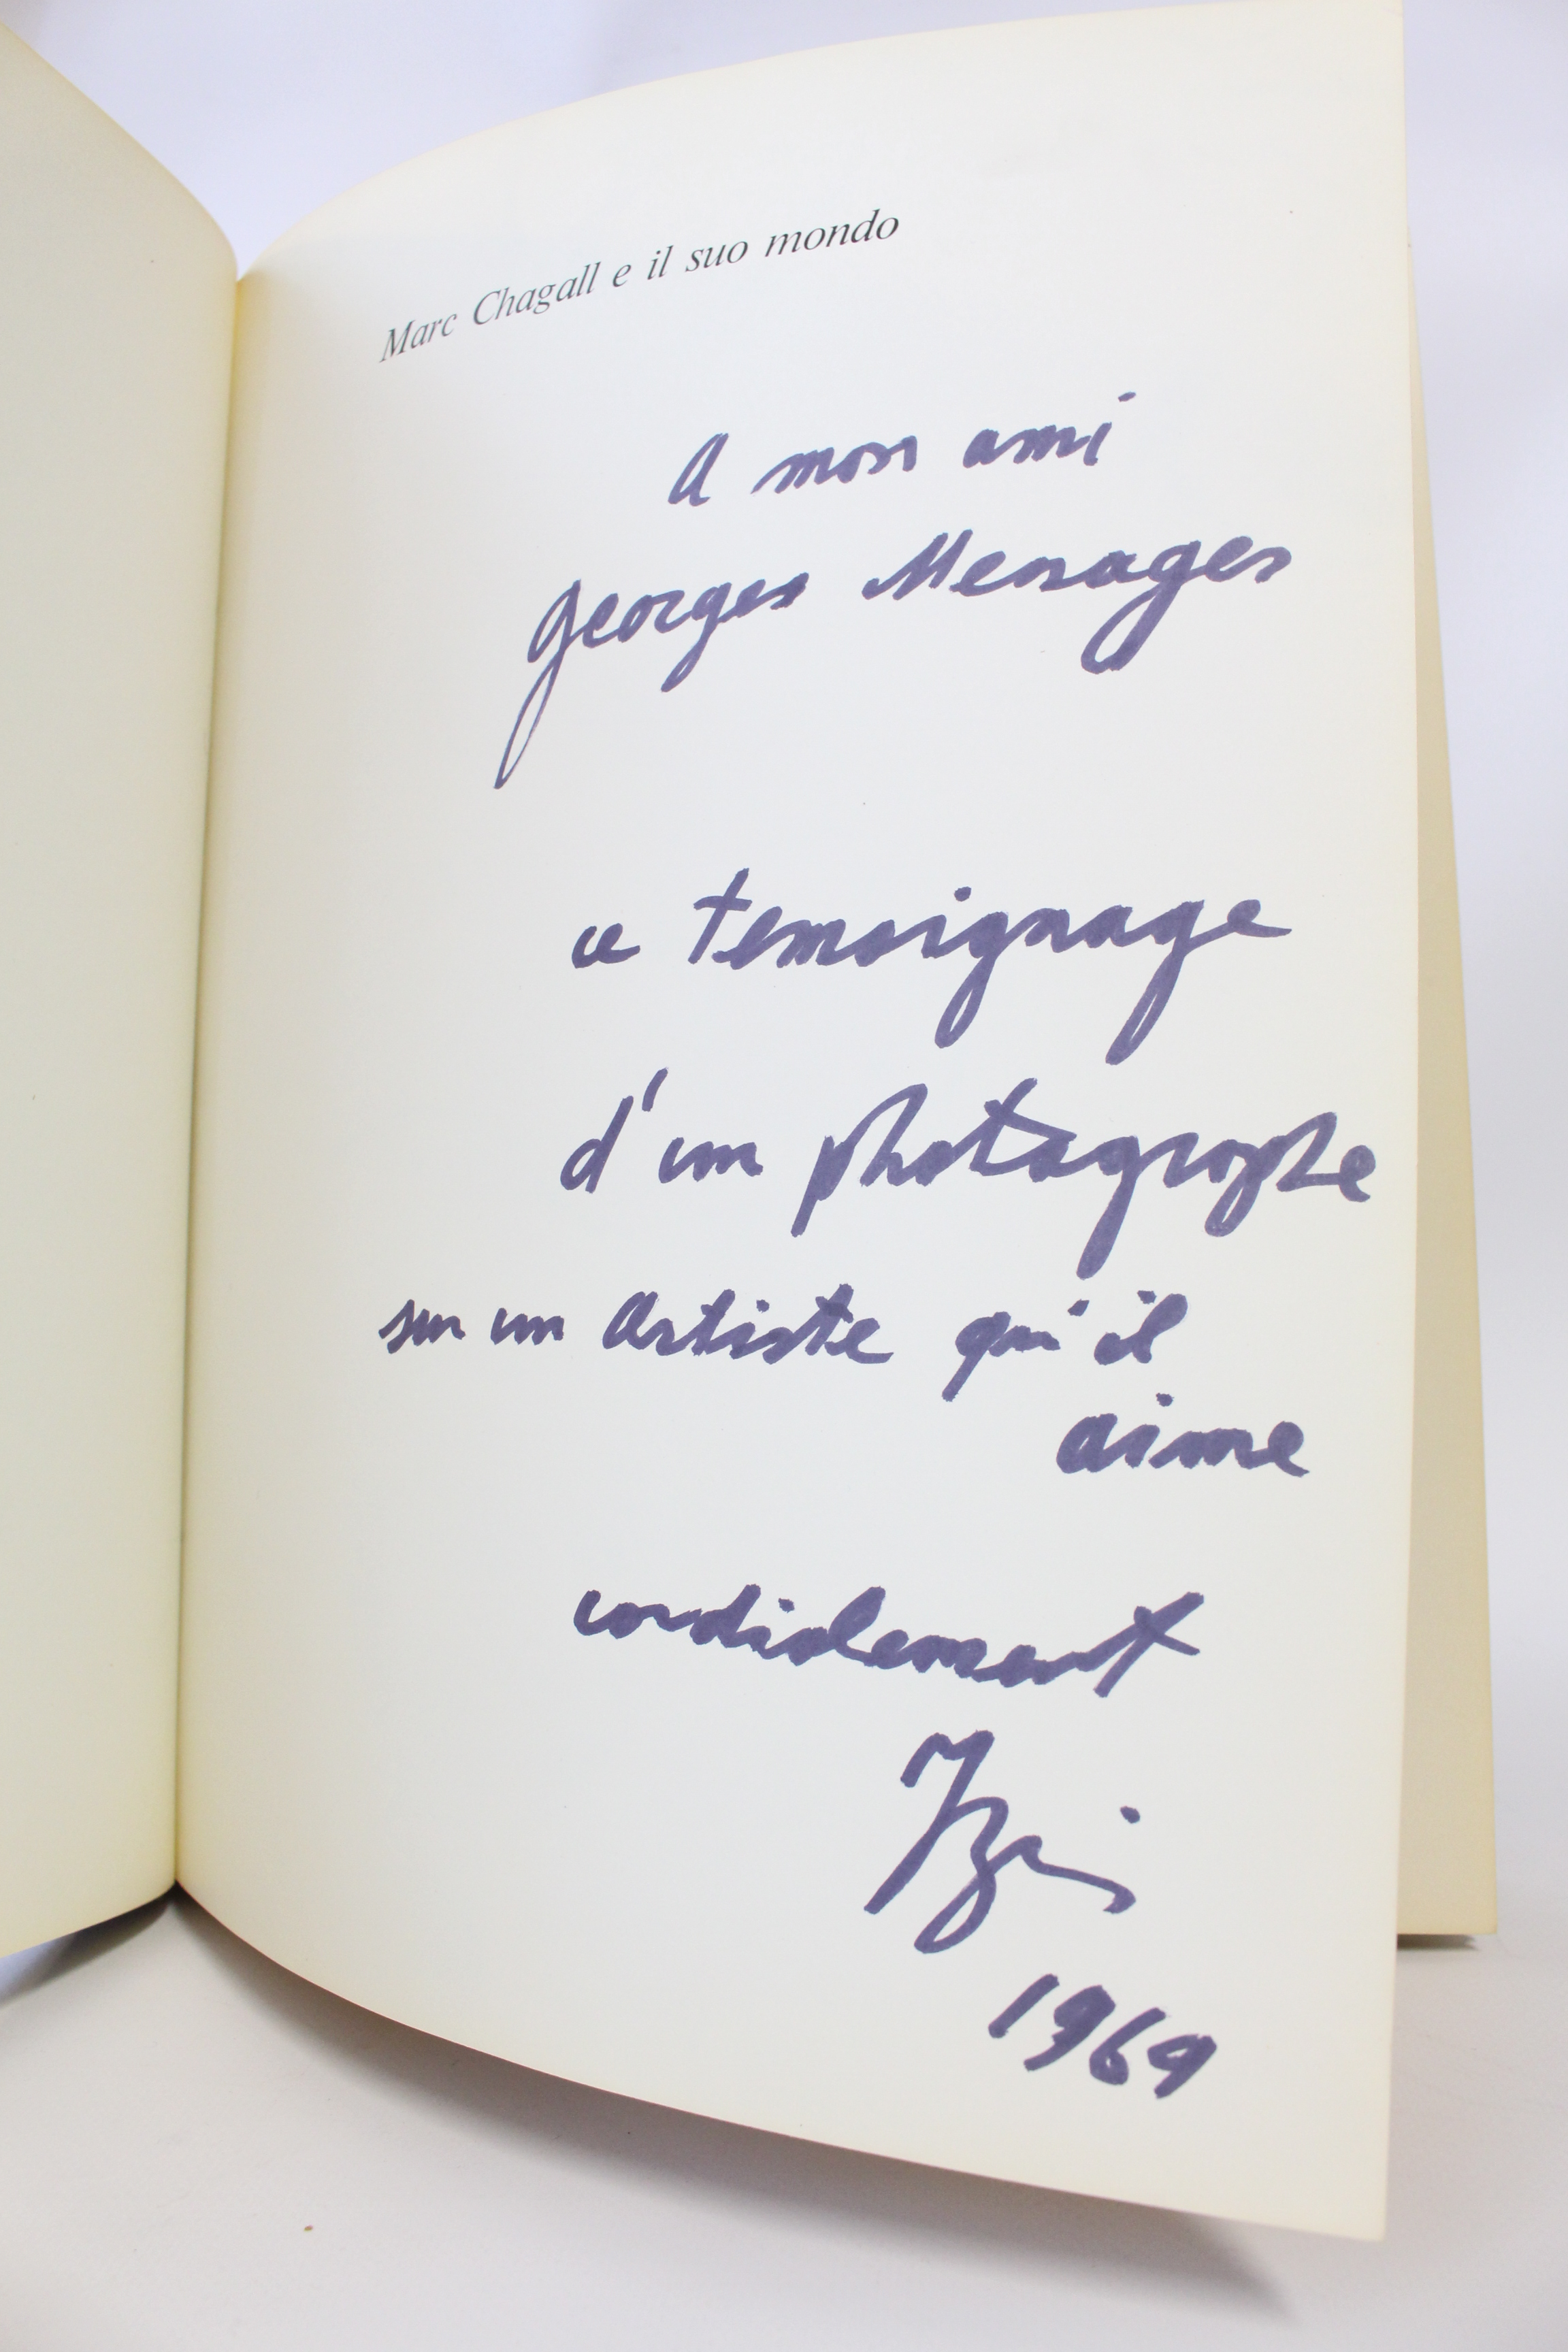 Marc Chagall e il suo mondo
A mon ami
Georges Menages
ce temoignage
d'un photographe
sur un artiste qu'il
aime
cordialement
Izis
1969